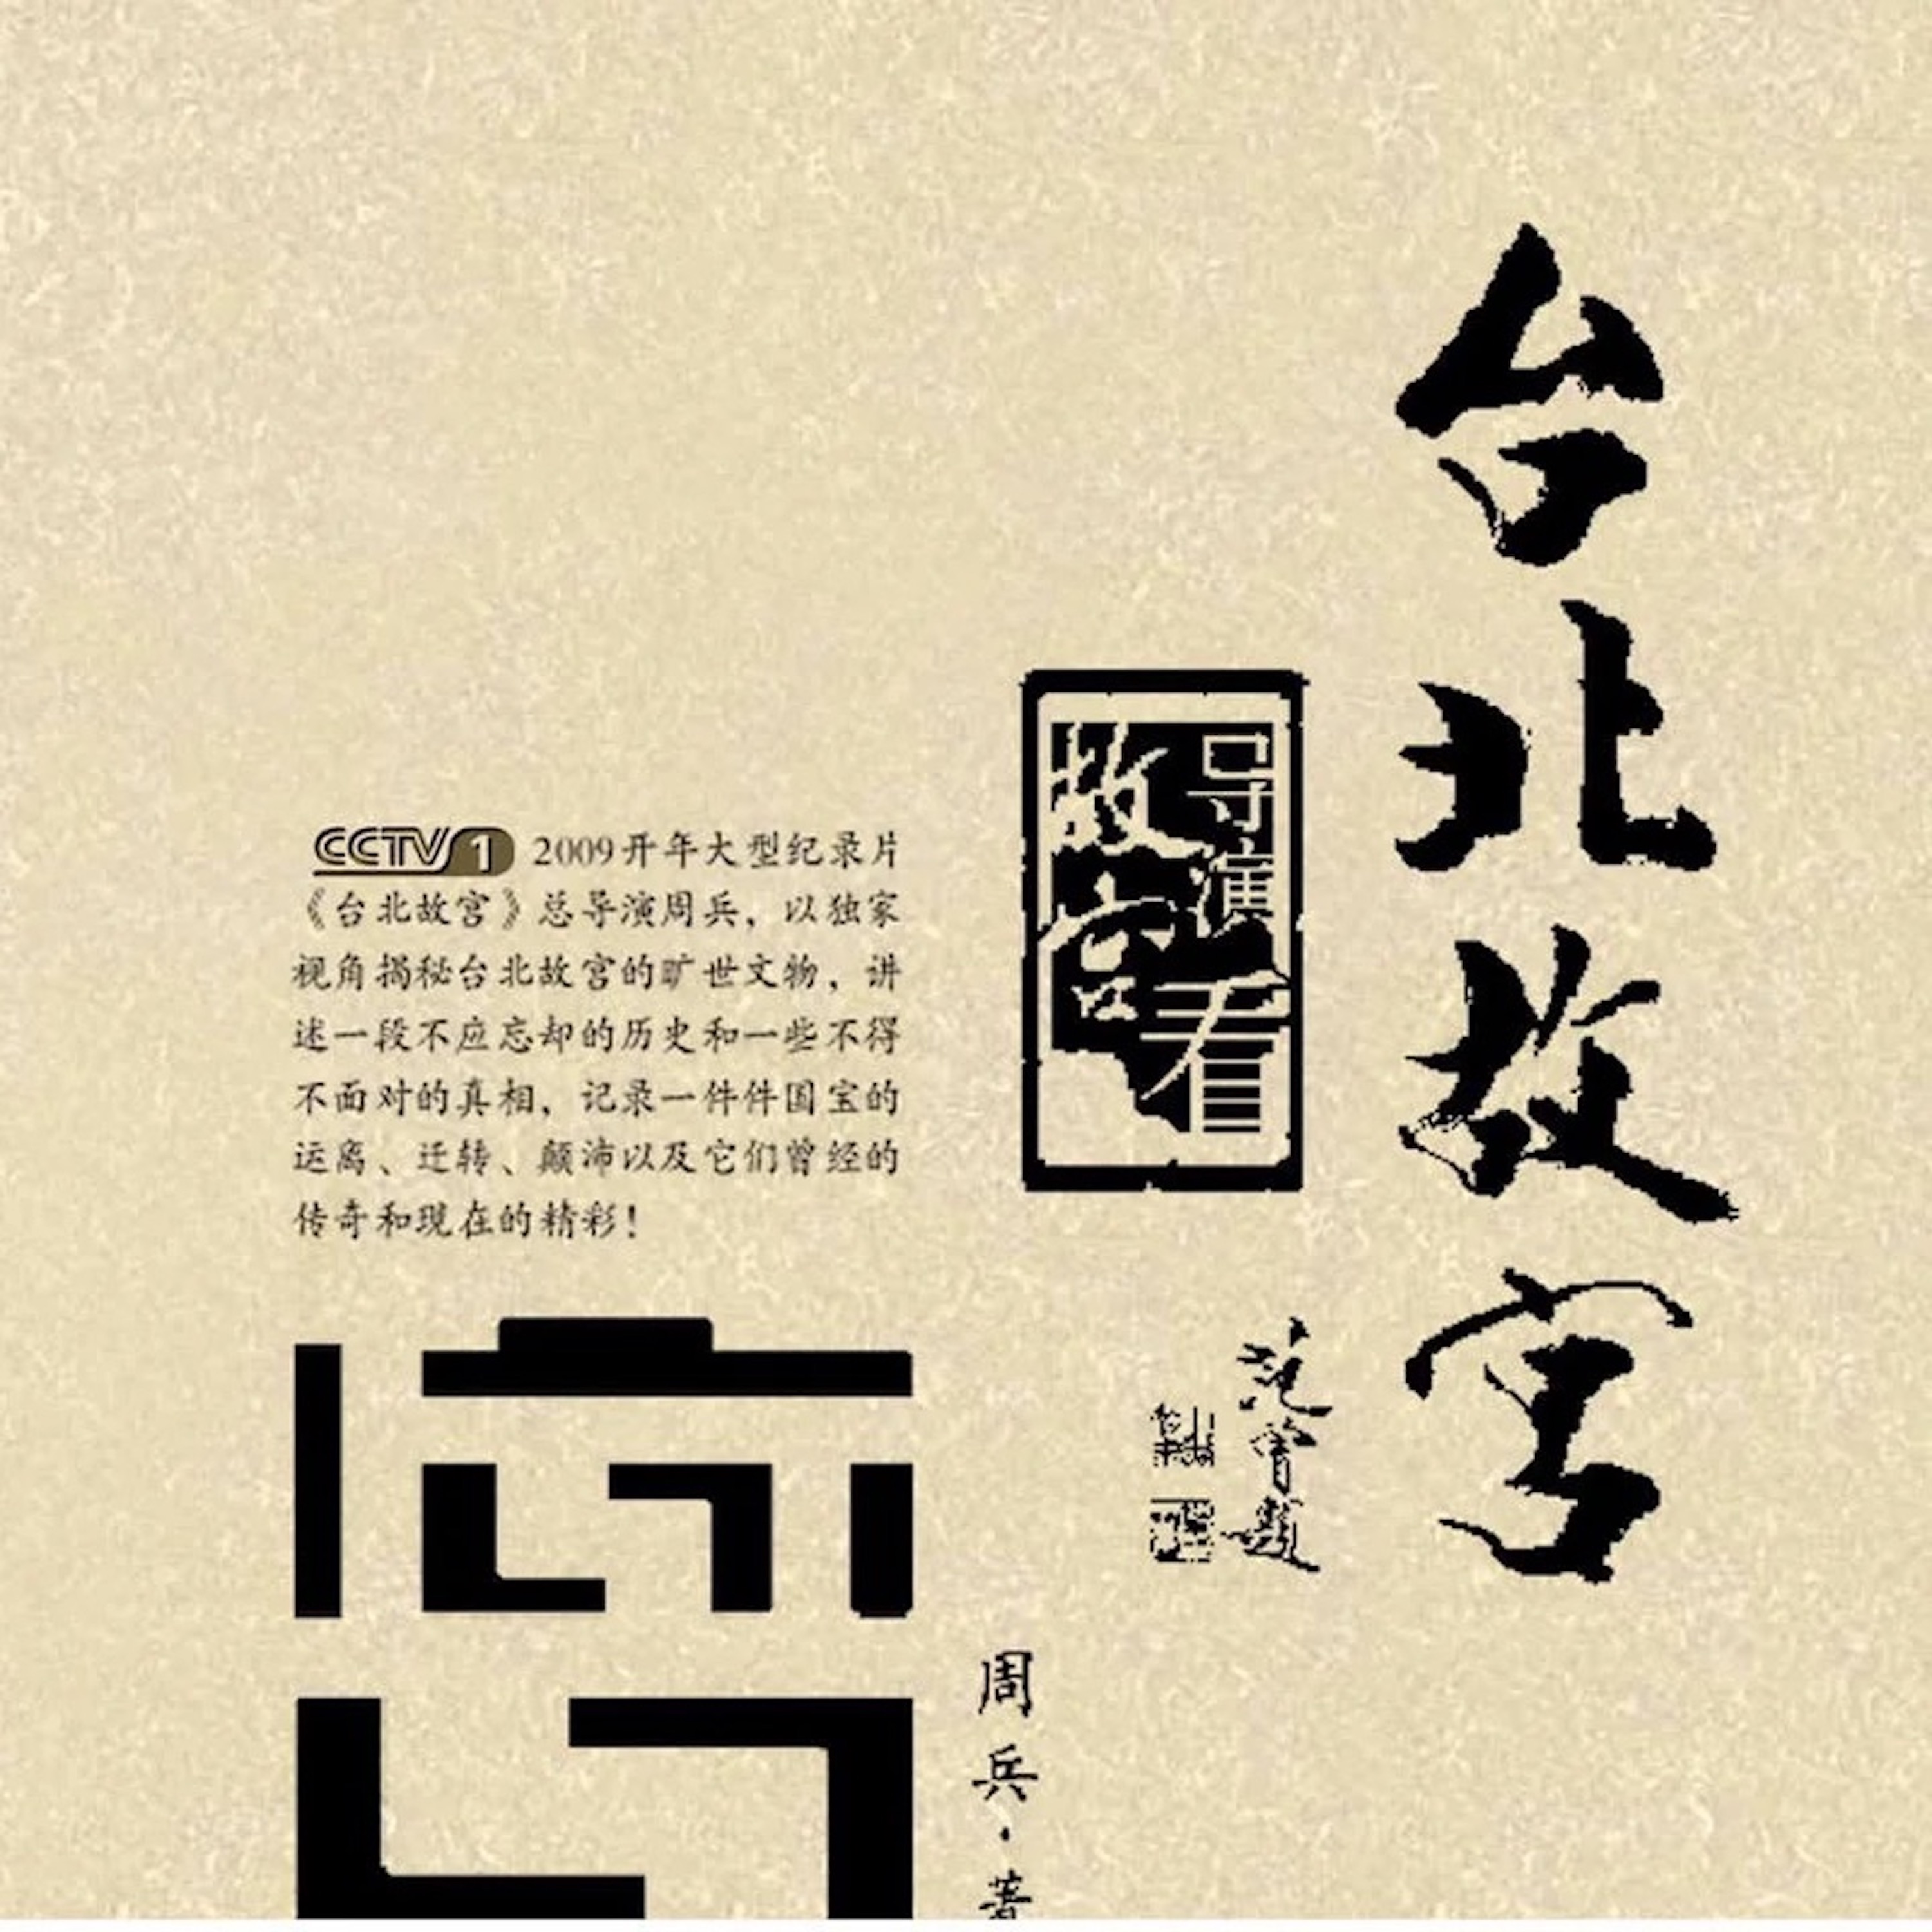 台北故宫
导演看
故宫
范曾题
CCTV 1 2009开年大型纪录片
《台北故宫》总导演周兵，以独家
视角揭秘台北故宫的旷世文物，讲
述一段不应忘却的历史和一些不得
不面对的真相，记录一件件国宝的
运离、迁转、颠沛以及它们曾经的
传奇和现在的精彩！
周兵·著